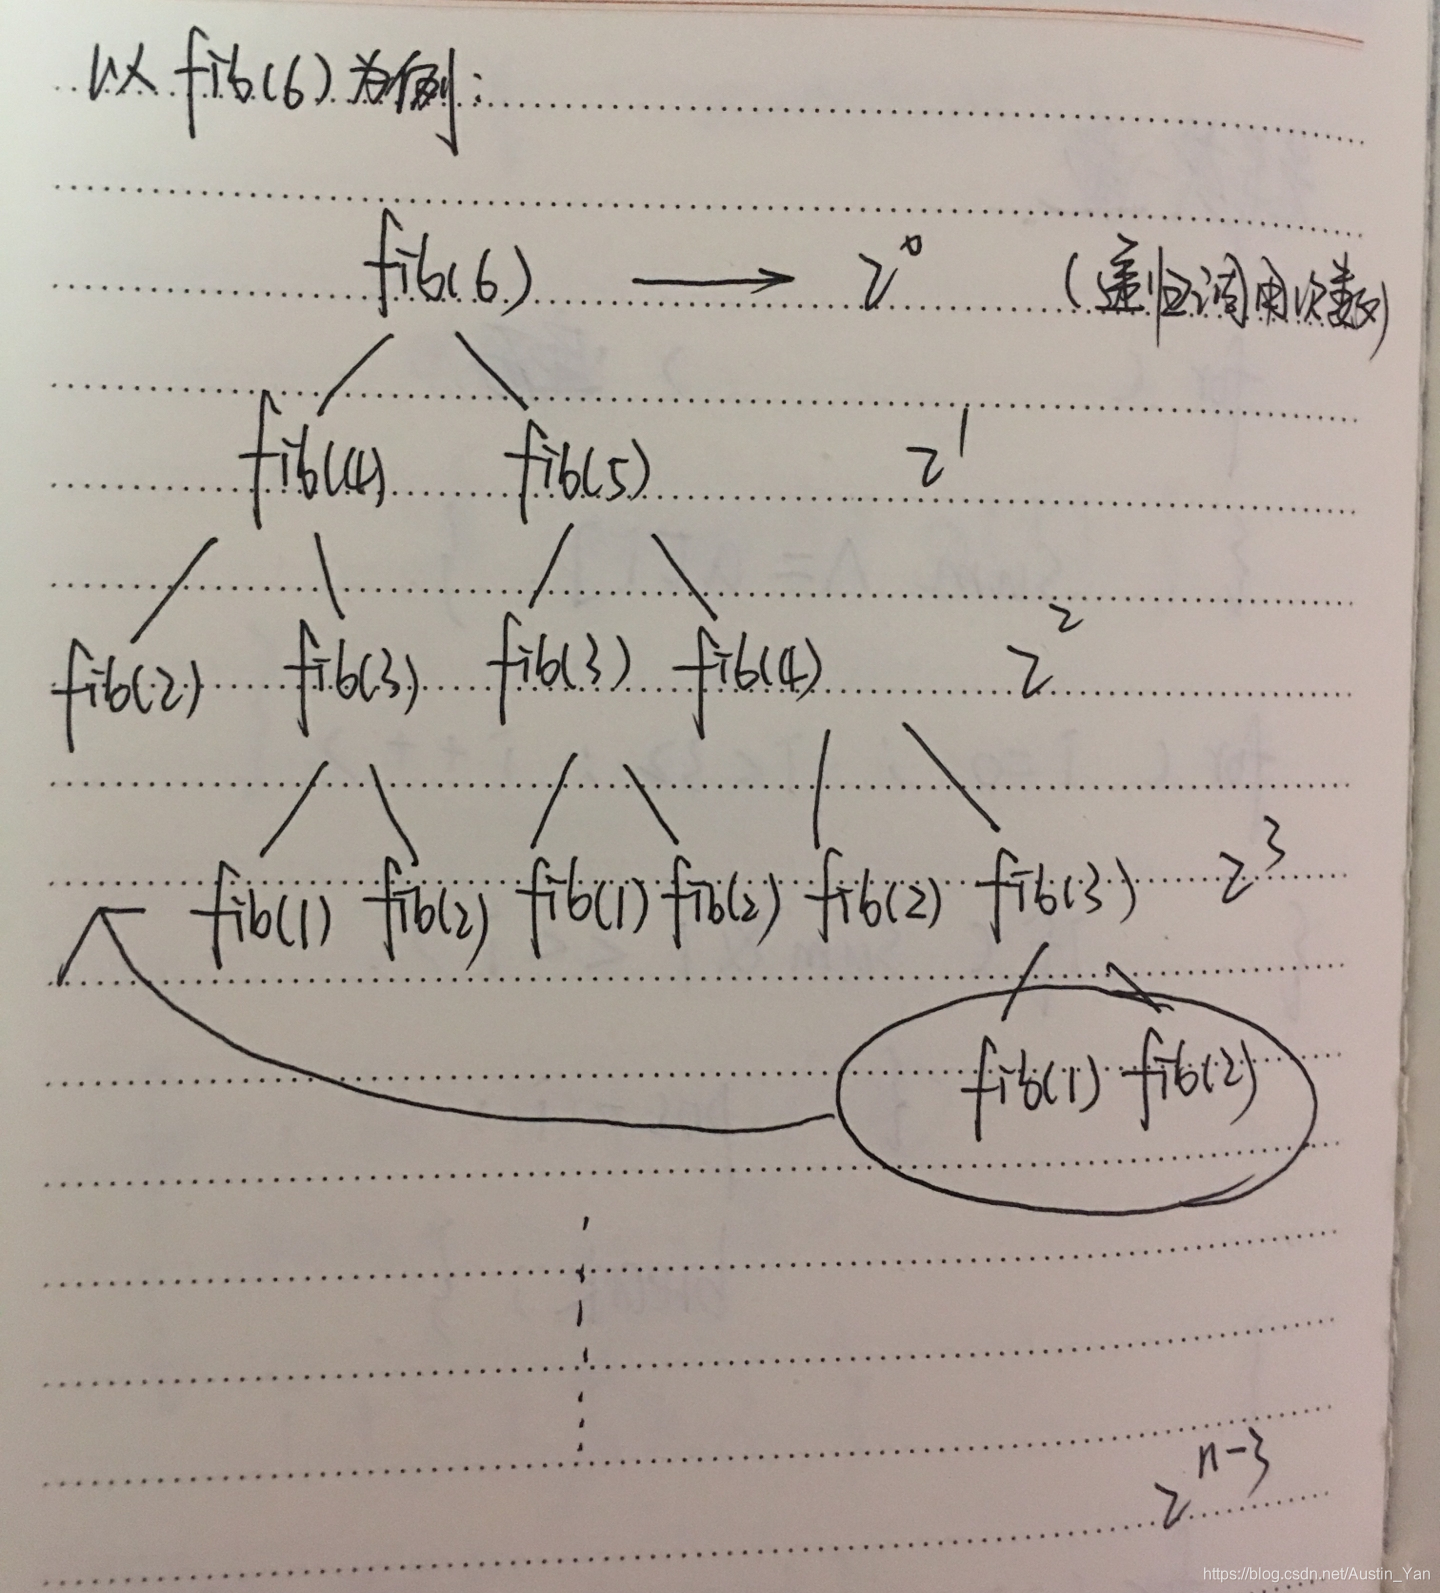 以 fib(6) 为例:
fib(6) → 2^0 (递归调用次数)
fib(4) fib(5) 2^1
fib(2) fib(3) fib(3) fib(4) 2^2
fib(1) fib(2) fib(1) fib(2) fib(2) fib(3) 2^3
fib(1) fib(2)
2^n-3
https://blog.csdn.net/Austin_Yan